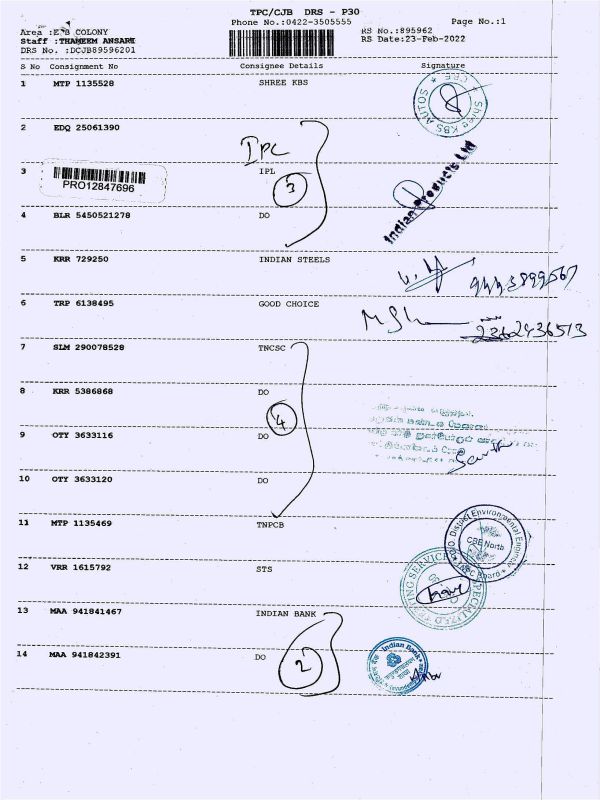 TPC/CJB DRS - P30
Phone No.:0422-3505555
Page No.:1
Area :E B COLONY
RS No.:895962
Staff :THAMEEM ANSARI
RS Date:23-Feb-2022
DRS No. :DCJB89596201
S No Consignment No Consignee Details Signature
1 MTP 1135528 SHREE KBS
Shree KBS AUTOS * CBE *
2 EDQ 25061390
IPC
3 PRO12847696 IPL
3
Indian Products Ltd
4 BLR 5450521278 DO
5 KRR 729250 INDIAN STEELS
6 TRP 6138495 GOOD CHOICE
7 SLM 290078528 TNCSC
8 KRR 5386868 DO
4
9 OTY 3633116 DO
10 OTY 3633120 DO
11 MTP 1135469 TNPCB
District Environmental Engineer
CBE North
12 VRR 1615792 STS
SPECIALIZED TESTING SERVICE
13 MAA 941841467 INDIAN BANK
14 MAA 942842391 DO
2
Indian Bank